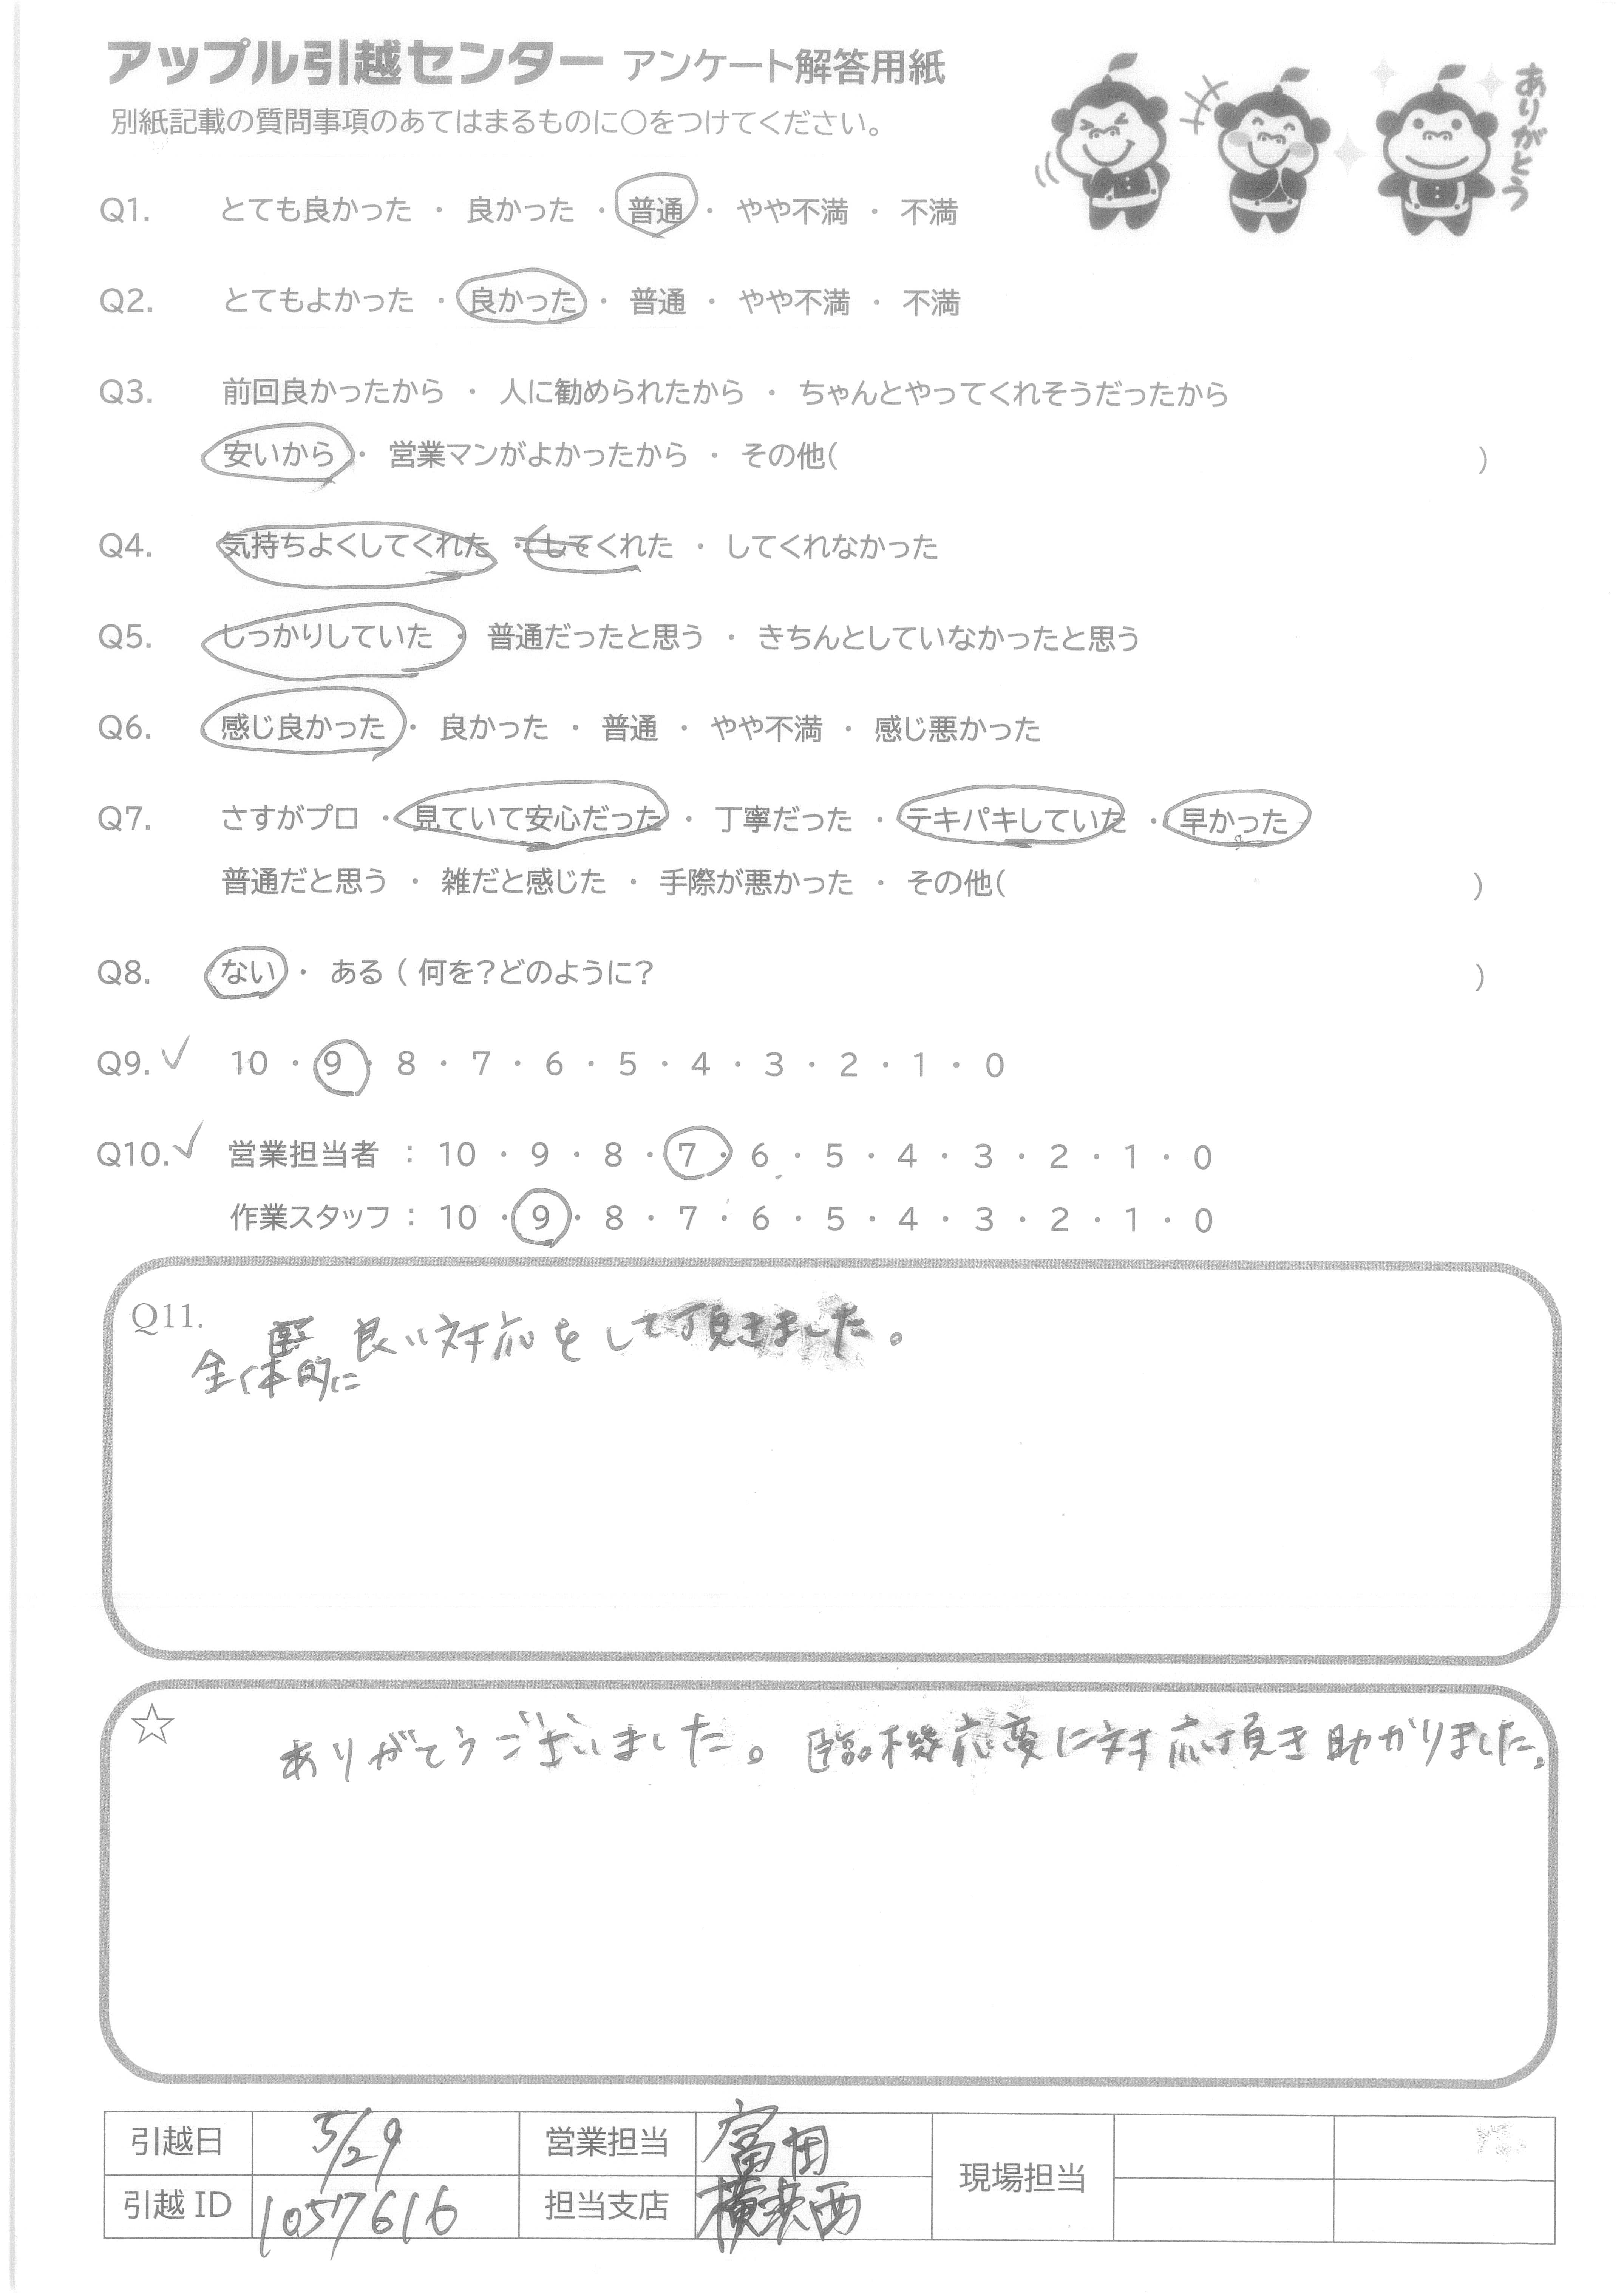 アップル引越センター アンケート解答用紙
別紙記載の質問事項のあてはまるものに○をつけてください。
ありがとう
Q1. とても良かった ・ 良かった ・ 普通 ・ やや不満 ・ 不満
Q2. とてもよかった ・ 良かった ・ 普通 ・ やや不満 ・ 不満
Q3. 前回良かったから ・ 人に勧められたから ・ ちゃんとやってくれそうだったから
安いから ・ 営業マンがよかったから ・ その他( )
Q4. 気持ちよくしてくれた ・ してくれた ・ してくれなかった
Q5. しっかりしていた ・ 普通だったと思う ・ きちんとしていなかったと思う
Q6. 感じ良かった ・ 良かった ・ 普通 ・ やや不満 ・ 感じ悪かった
Q7. さすがプロ ・ 見ていて安心だった ・ 丁寧だった ・ テキパキしていた ・ 早かった
普通だと思う ・ 雑だと感じた ・ 手際が悪かった ・ その他( )
Q8. ない ・ ある ( 何を?どのように? )
Q9. ✓ 10 ・ 9 ・ 8 ・ 7 ・ 6 ・ 5 ・ 4 ・ 3 ・ 2 ・ 1 ・ 0
Q10. ✓ 営業担当者 : 10 ・ 9 ・ 8 ・ 7 ・ 6 ・ 5 ・ 4 ・ 3 ・ 2 ・ 1 ・ 0
作業スタッフ : 10 ・ 9 ・ 8 ・ 7 ・ 6 ・ 5 ・ 4 ・ 3 ・ 2 ・ 1 ・ 0
Q11. 良い対応をして頂きました。
全体的に
☆ ありがとうございました。臨機応変に対応頂き助かりました。
引越日 5/29 営業担当 富田 現場担当
引越 ID 1057616 担当支店 横浜西